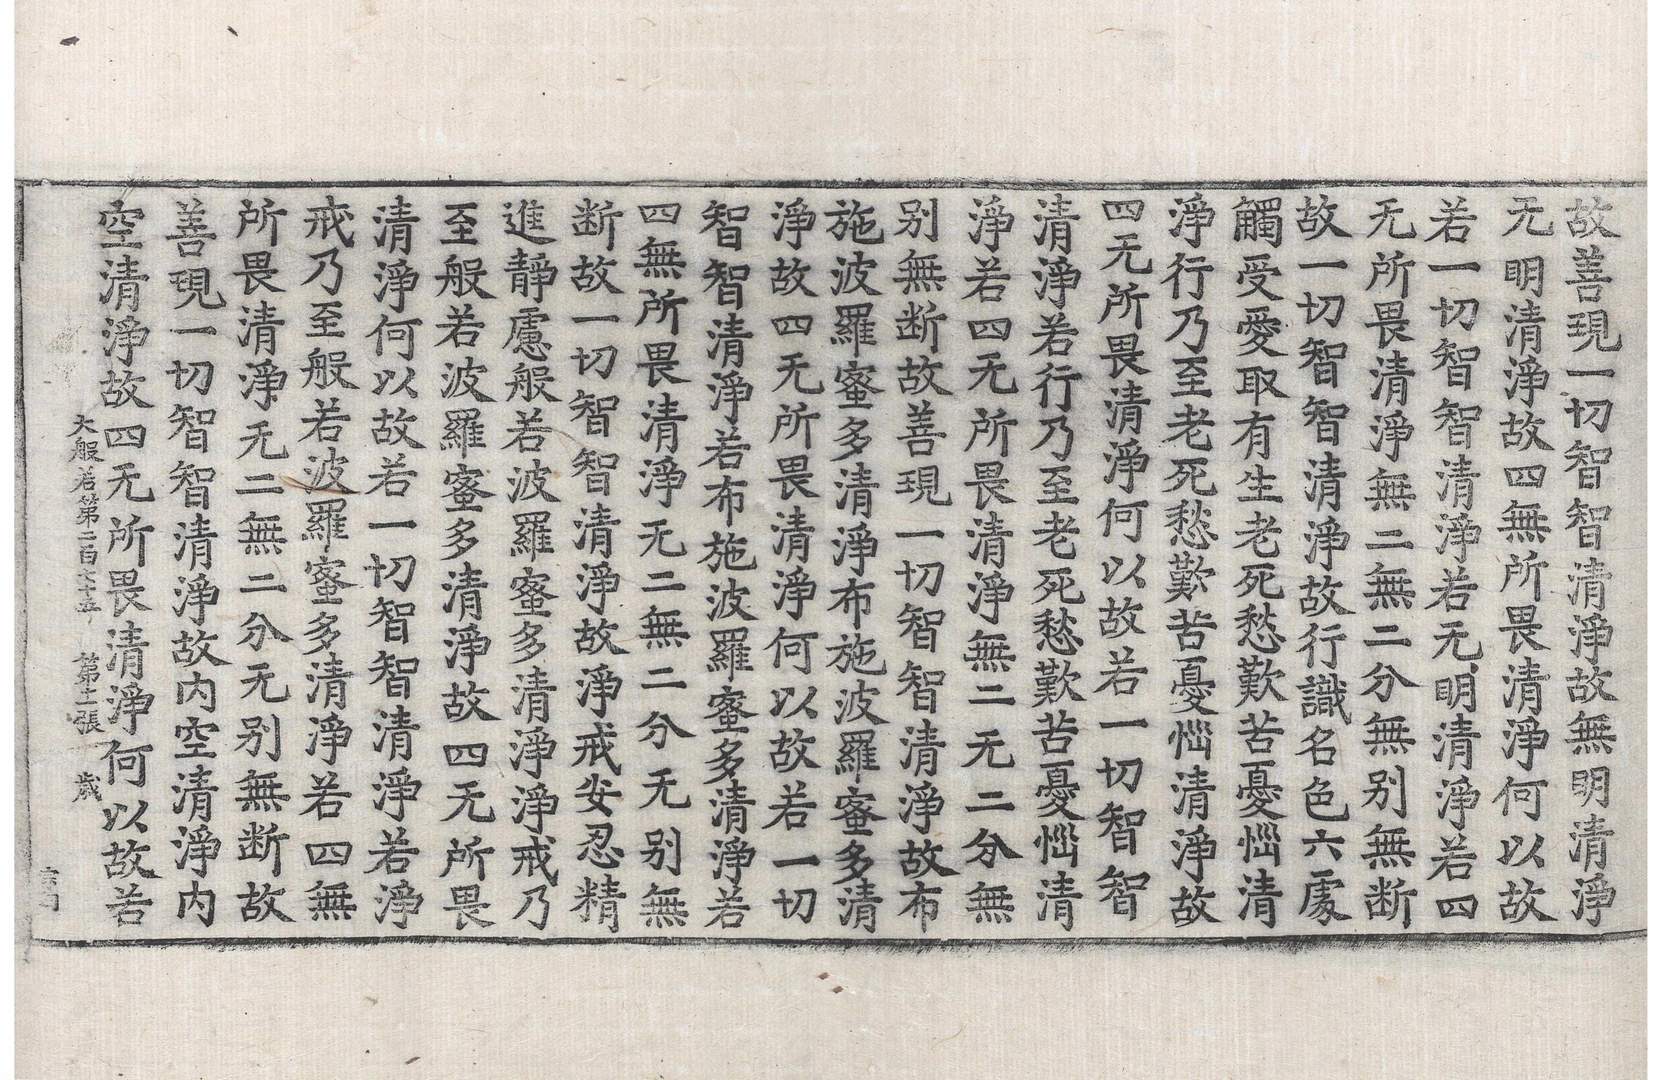 故善現一切智智清淨故無明清淨
无明清淨故四無所畏清淨何以故
若一切智智清淨若无明清淨若四
无所畏清淨無二無二分無别無断
故一切智智清淨故行識名色六處
觸受愛取有生老死愁歎苦憂惱清
淨行乃至老死愁歎苦憂惱清淨故
四无所畏清淨何以故若一切智智
清淨若行乃至老死愁歎苦憂惱清
淨若四无所畏清淨無二无二分無
别無断故善現一切智智清淨故布
施波羅蜜多清淨布施波羅蜜多清
淨故四无所畏清淨何以故若一切
智智清淨若布施波羅蜜多清淨若
四無所畏清淨无二無二分无别無
断故一切智智清淨故淨戒安忍精
進靜慮般若波羅蜜多清淨淨戒乃
至般若波羅蜜多清淨故四无所畏
清淨何以故若一切智智清淨若淨
戒乃至般若波羅蜜多清淨若四無
所畏清淨无二無二分无别無断故
善現一切智智清淨故内空清淨内
空清淨故四无所畏清淨何以故若
大般若第二百六十五 第二張 歲